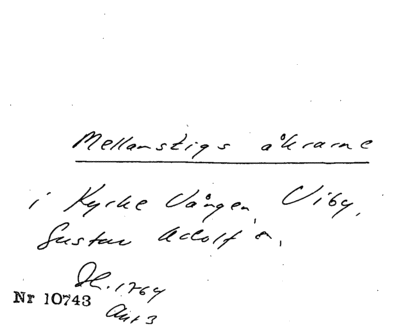 Mellanstigs åkrarne
i Kyrke Vången, Viby,
Gustav Adolf s.
Sk. 1764
Nr 10743
Akt 3